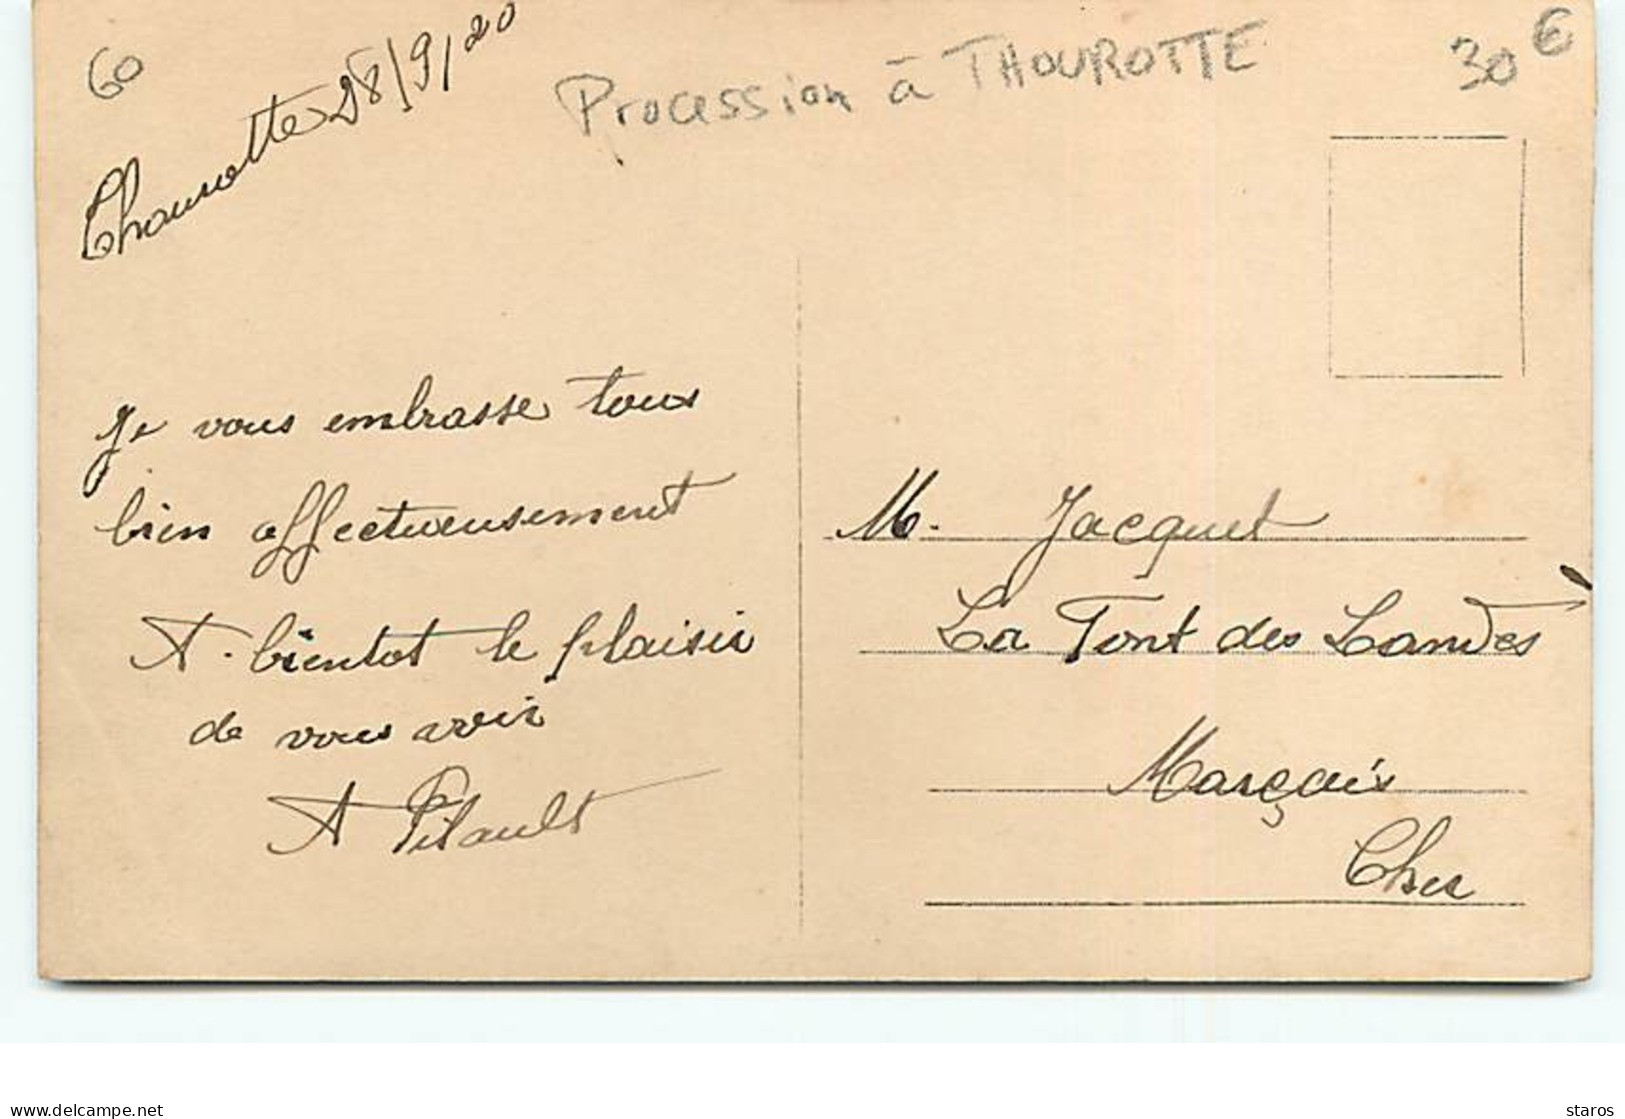 60
Thourotte 28/9/20
Procession à THOUROTTE
30 €
Je vous embrasse tous
bien affectueusement
A. bientot le plaisir
de vous voir
A Pitault
M. Jacquet
La Font des Landes
Marçais
Cher
delcampe.net
staros